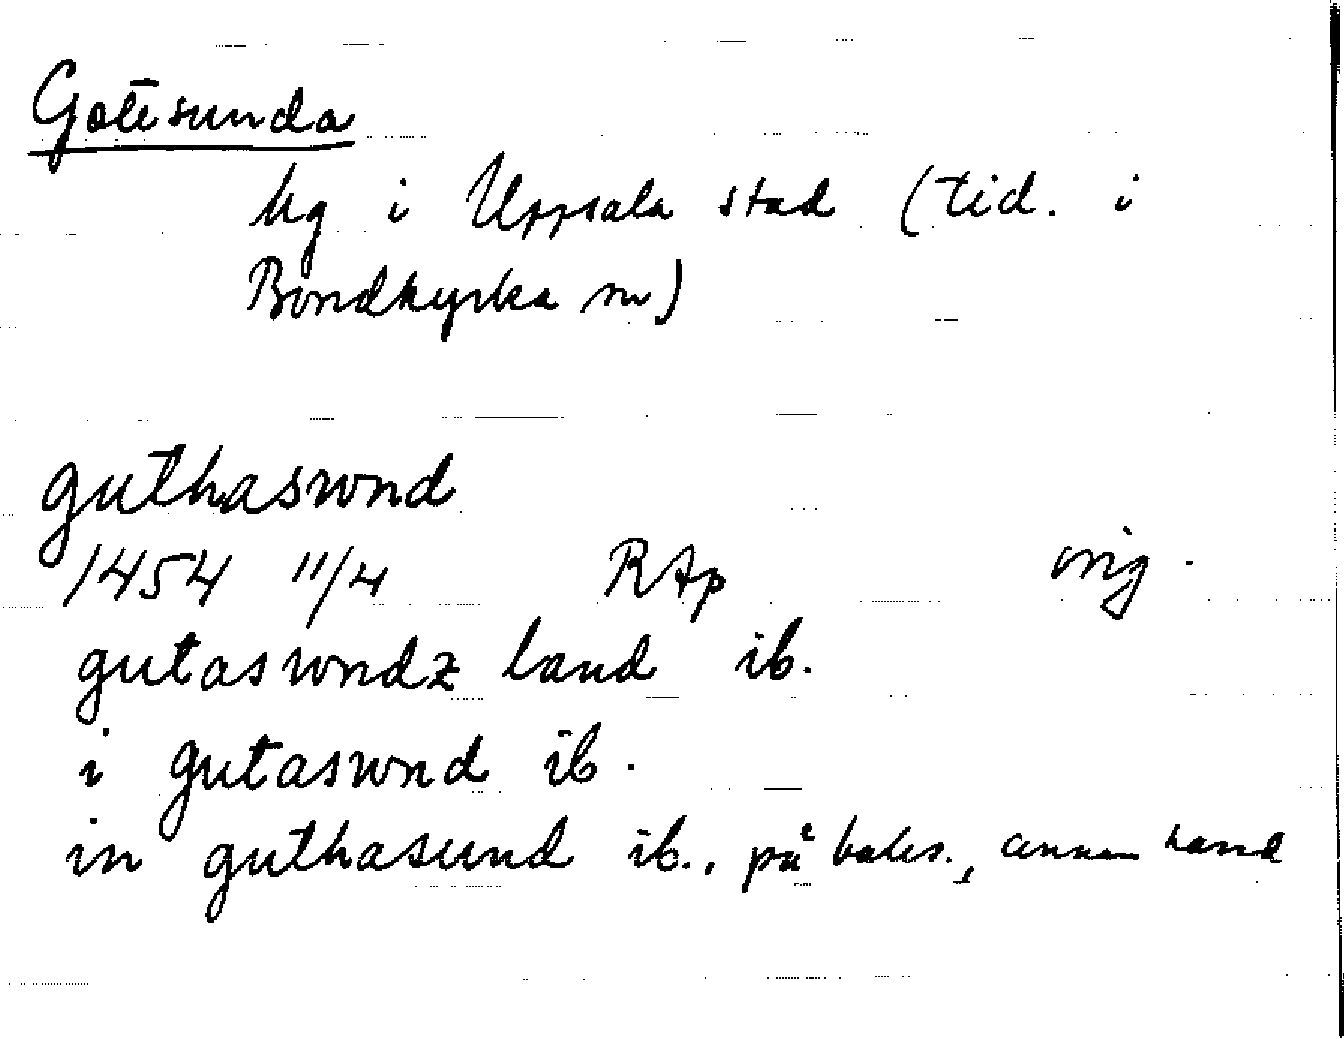 Gottsunda
kg i Uppsala stad (tid. i
Bondkyrka sn)
guthaswnd
1454 11/4 RAp orig.
gutaswndz land ib.
i gutaswnd ib.
in guthasund ib., på baks., annan hand